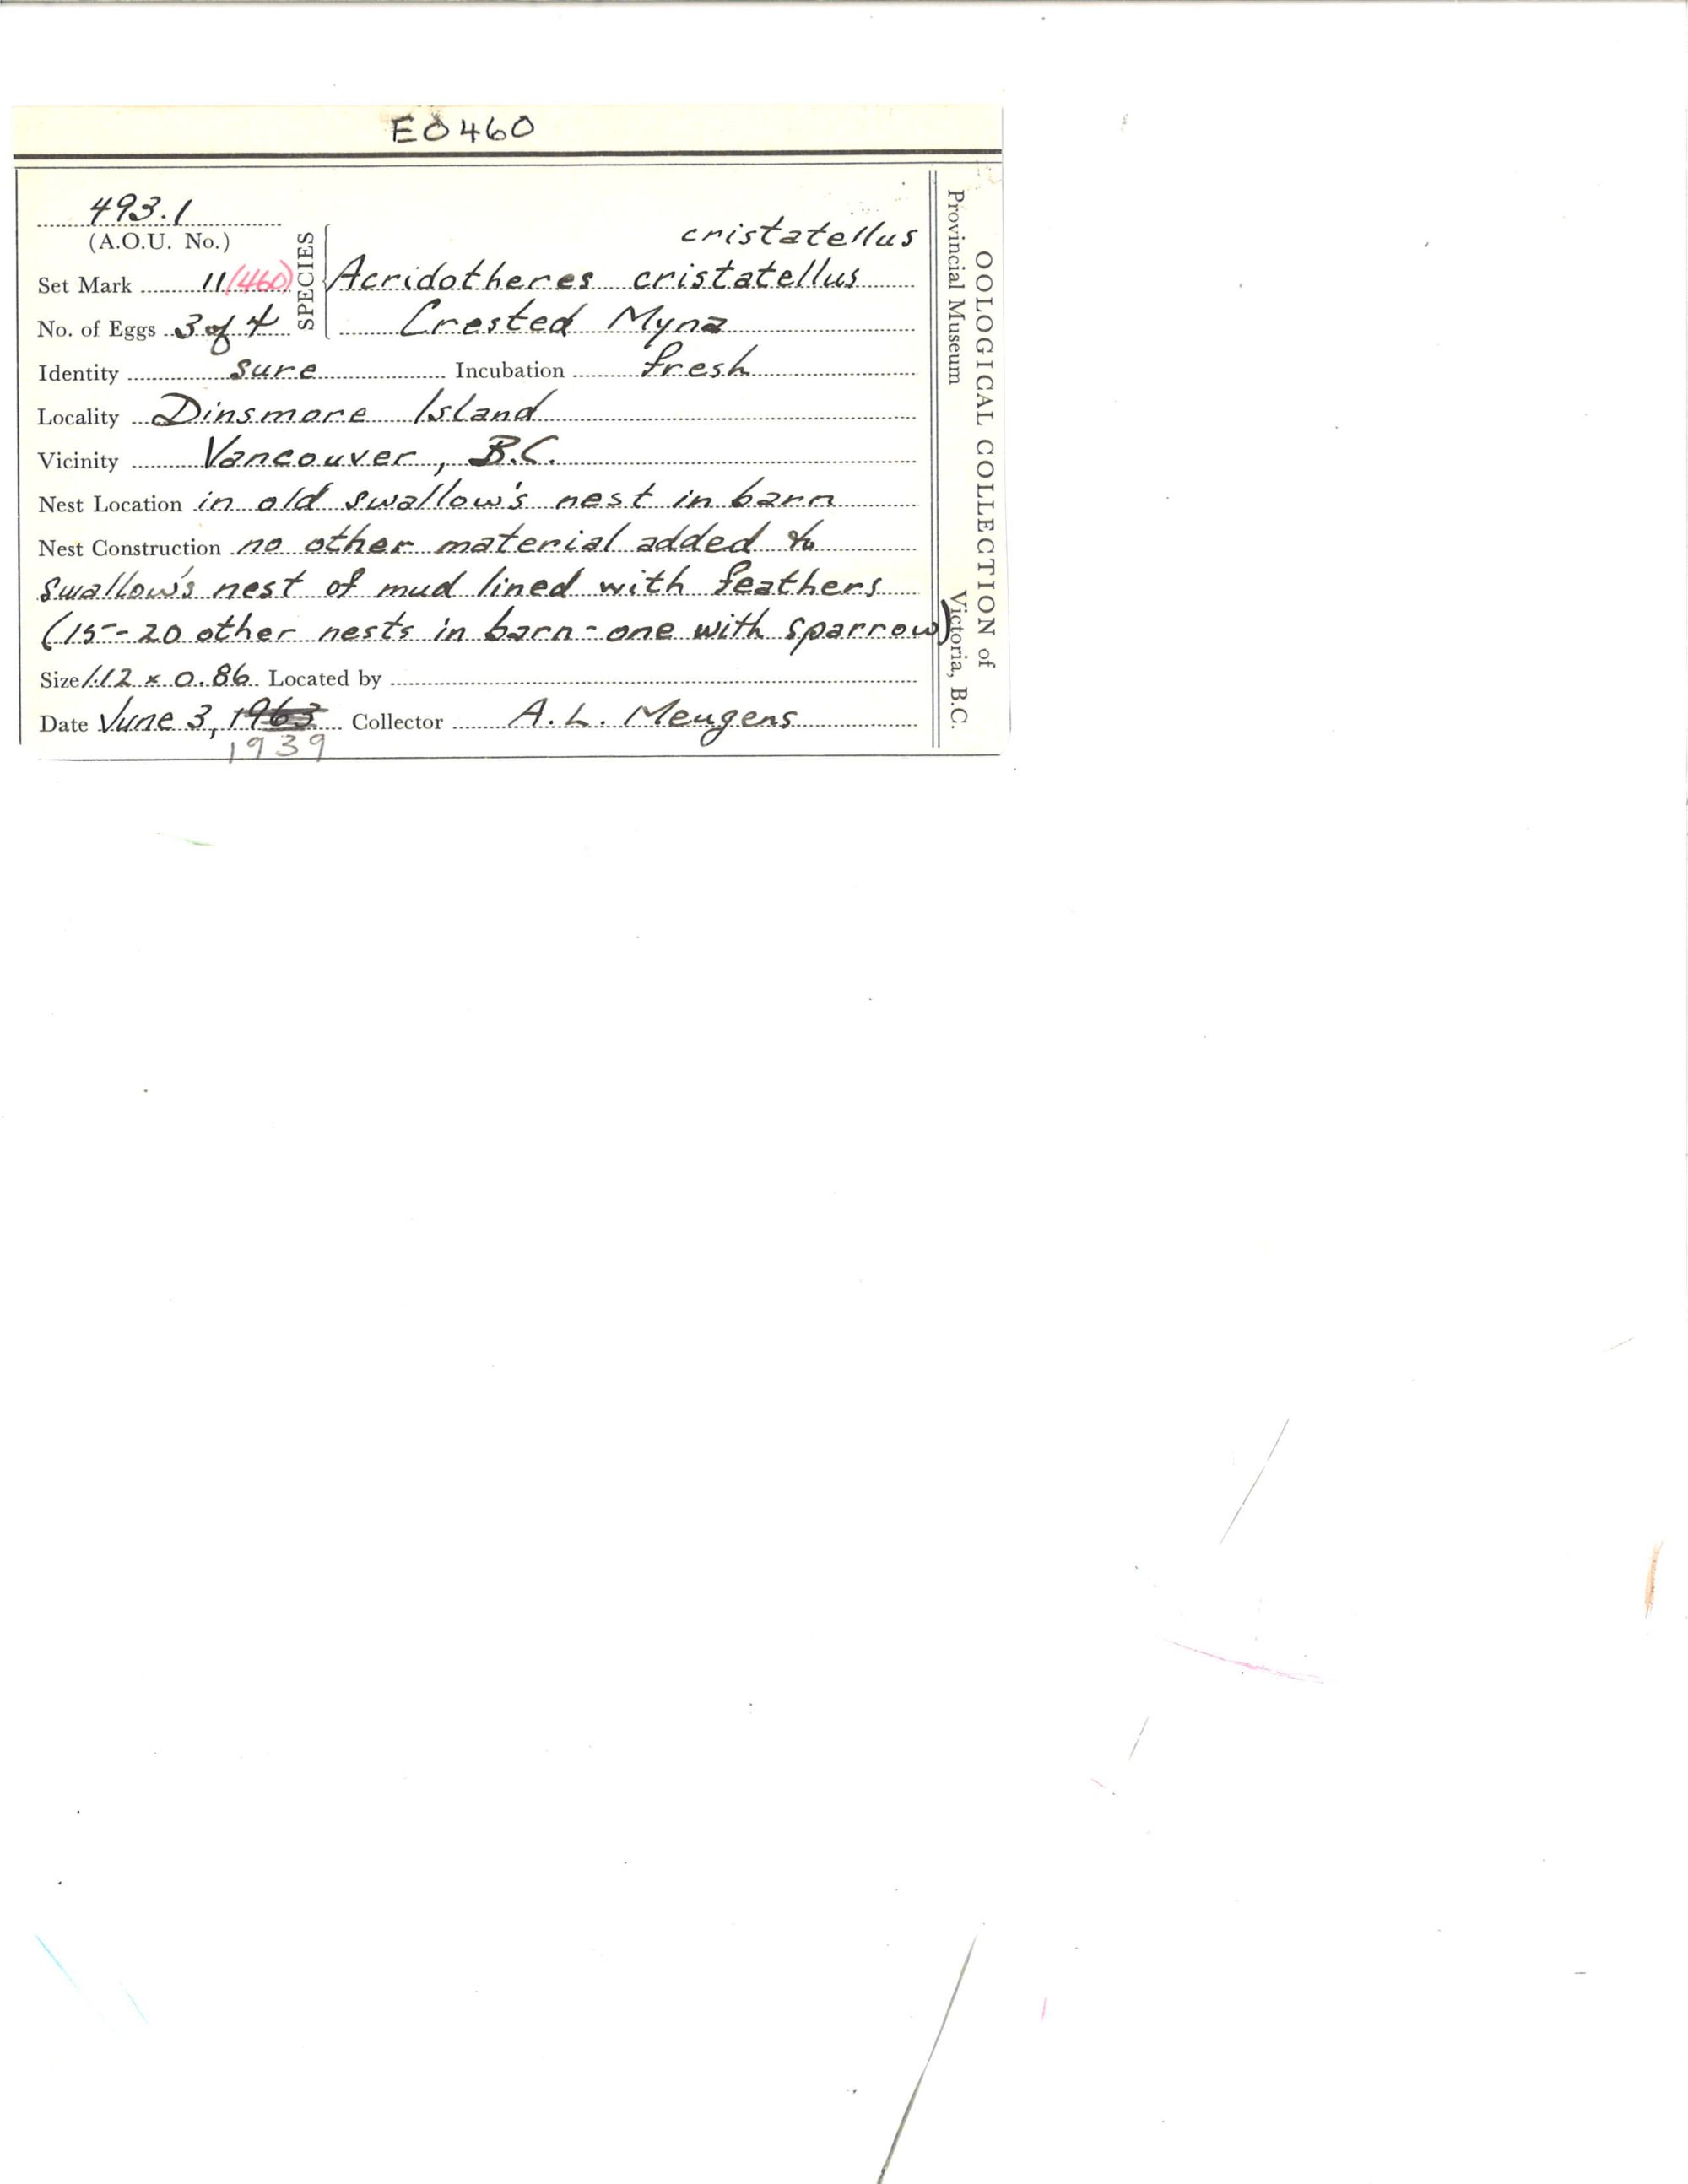 E0460
493.1
(A.O.U. No.)
SPECIES
cristatellus
Set Mark 11 (460) Acridotheres cristatellus
No. of Eggs 3 of 4 Crested Myna
Identity sure Incubation fresh
Locality Dinsmore Island
Vicinity Vancouver, B.C.
Nest Location in old swallow's nest in barn
Nest Construction no other material added to
swallow's nest of mud lined with feathers
(15-20 other nests in barn - one with sparrow)
Size 1.12 x 0.86 Located by
Date June 3, 1963 Collector A. L. Meugens
1939
OOLOGICAL COLLECTION of
Provincial Museum Victoria, B.C.